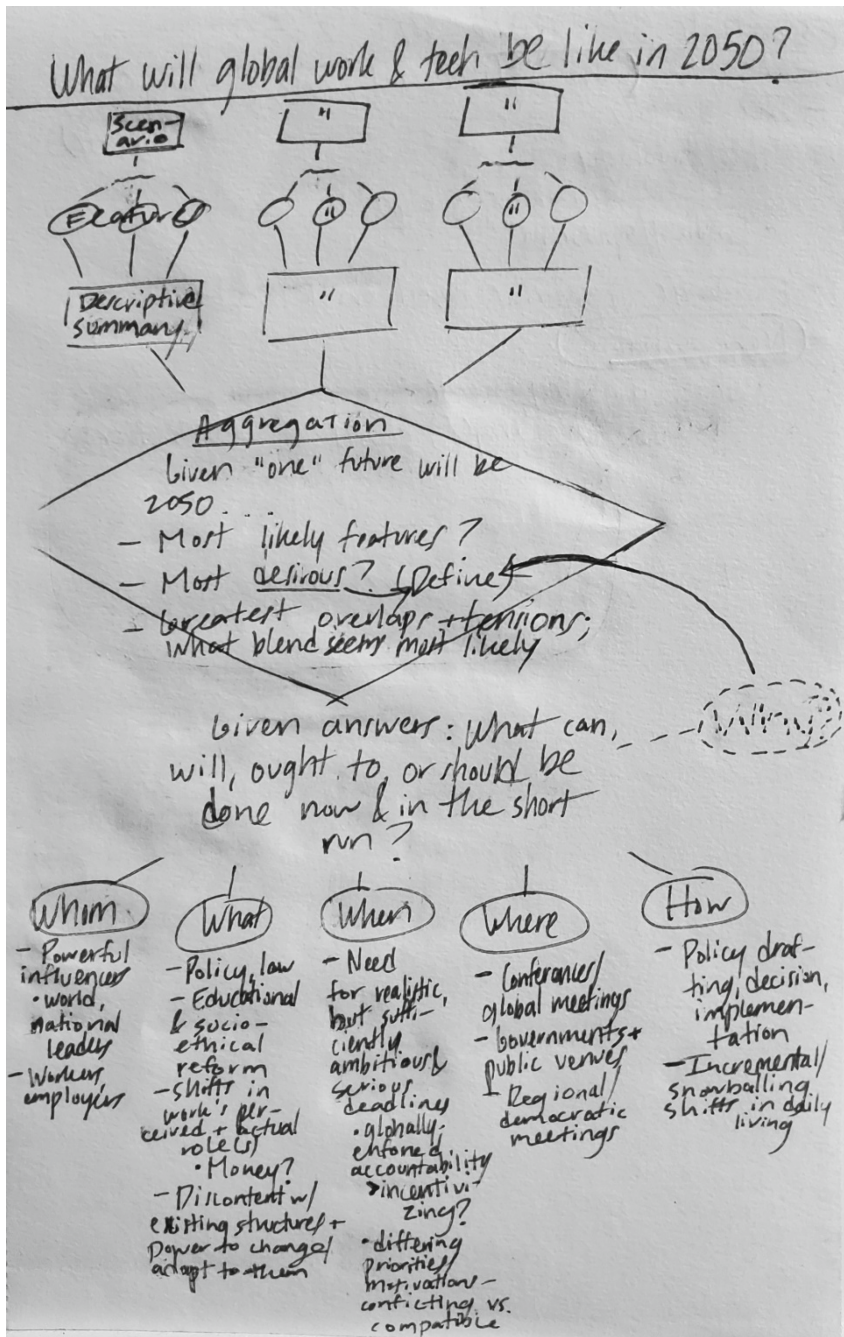 What will global work & tech be like in 2050?
Scen-
ario
"
"
Feature
"
"
Descriptive
summary
"
"
Aggregation
Given "one" future will be
2050....
- Most likely features?
- Most desirous? (Define)
- Greatest overlaps + tensions;
What blend seems most likely
Why?
Given answers: What can,
will, ought to, or should be
done now & in the short
run?
Whom
- Powerful
influencers
• world,
national
leaders
- Workers
employers
What
- Policy, law
- Educational
& socio-
ethical
reform
- Shifts in
work's per-
ceived + actual
role(s)
• Money?
- Discontent w/
existing structures +
power to change/
adapt to them
When
- Need
for realistic,
but suffi-
ciently
ambitious &
serious
deadlines
• globally-
enforced
accountability
> incentivi-
zing?
• differing
priorities/
motivations -
conflicting vs.
compatible
Where
- Conferences/
global meetings
- Governments +
public venues
- Regional/
democratic
meetings
How
- Policy draf-
ting, decision,
implemen-
tation
- Incremental/
snowballing
shifts in daily
living